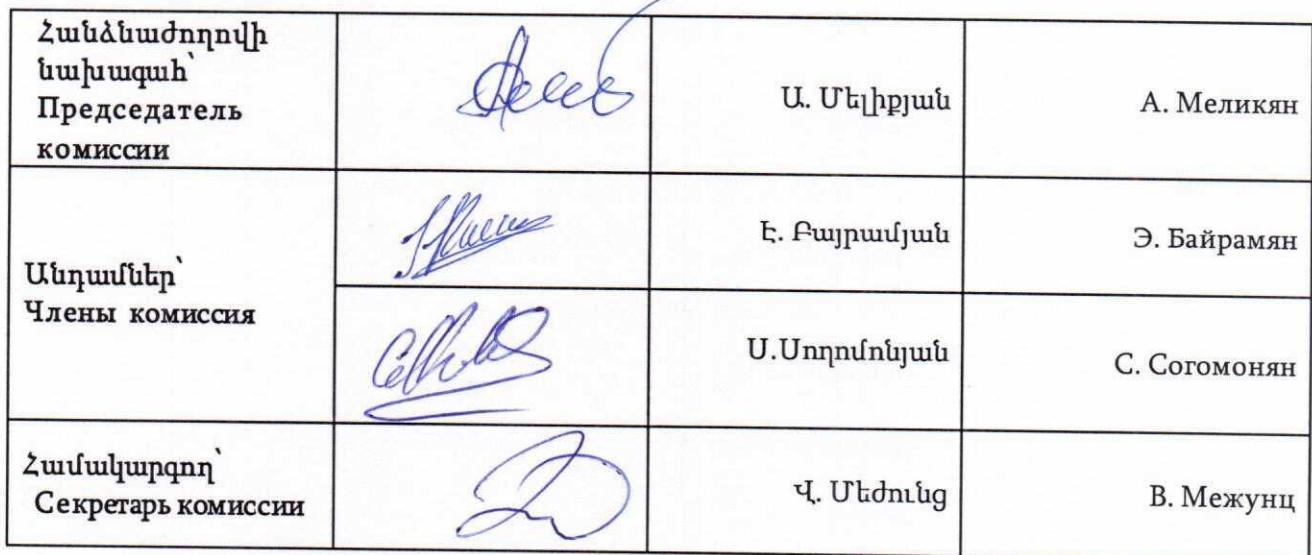 Հանձնաժողովի
նախագահ՝
Председатель
комиссии
Ա. Մելիքյան
А. Меликян
Անդամներ՝
Члены комиссия
Է. Բայրամյան
Э. Байрамян
Ս.Սողոմոնյան
С. Согомонян
Համակարգող՝
Секретарь комиссии
Վ. Մեժունց
В. Межунц